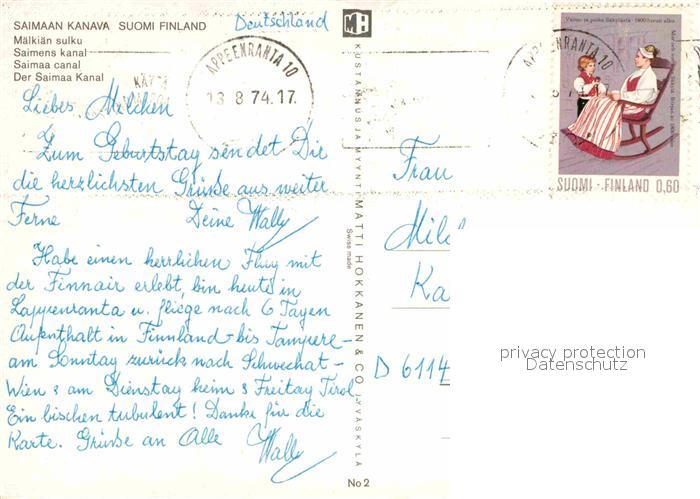 SAIMAAN KANAVA SUOMI FINLAND
Mälkiän sulku
Saimens kanal
Saimaa canal
Der Saimaa Kanal
Deutschland
APPEENRANTA 10
13 8 74.17.
Liebes Milchen
Zum Geburtstag sendet Dir
die herzlichsten Grüße aus weiter
Ferne Deine Wally
Habe einen herrlichen Flug mit
der Finnair erlebt, bin heute in
Lappenranta u. fliege nach 6 Tagen
Aufenthalt in Finnland - bis Tampere -
am Sonntag zurück nach Schwechat -
Wien & am Dienstag heim & Freitag Tirol
Ein bischen turbulent! Danke für die
Karte. Grüße an Alle Wally
KUSTANNUSJA MYYNTI MATTI HOKKANEN & CO JYVÄSKYLÄ
Swiss made
No 2
Frau
Mil
Ka
D 6114
APPEENRANTA 10
SUOMI - FINLAND 0,60
privacy protection
Datenschutz